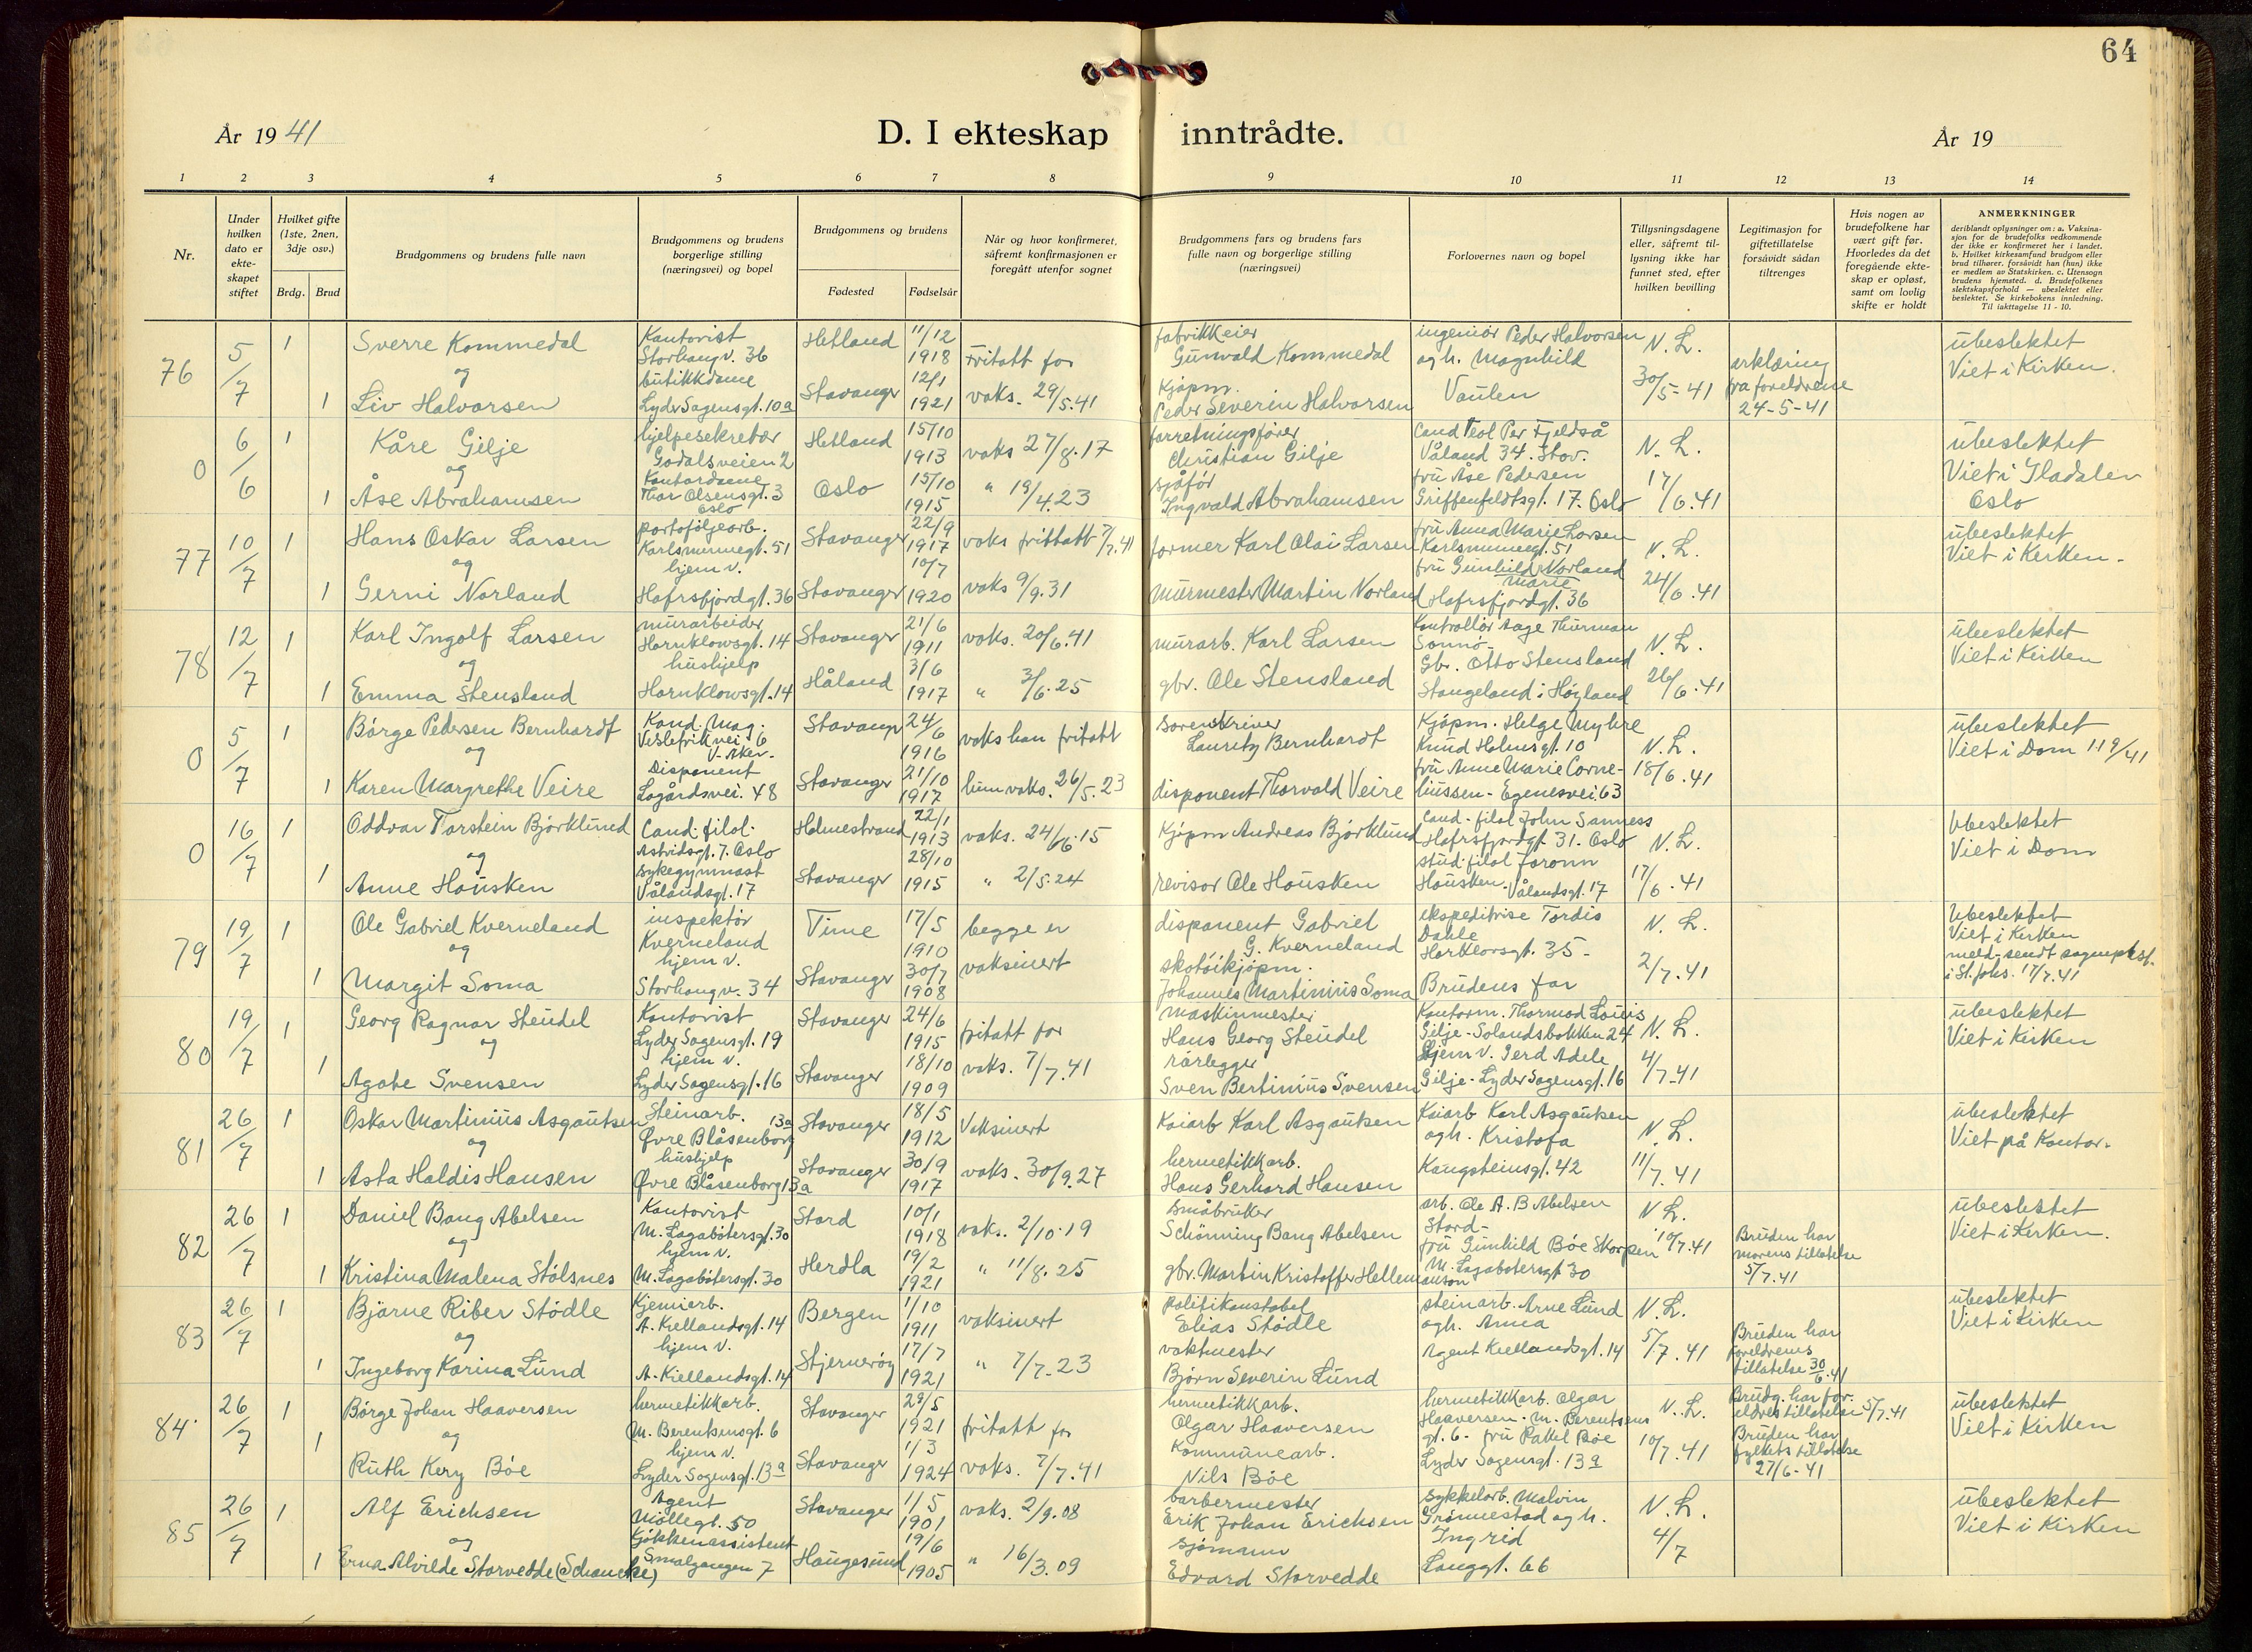 64
År 1941
D. I ekteskap inntrådte.
År 19
1 2 3 4 5 6 7 8 9 10 11 12 13 14
Nr.
Under hvilken dato er ekte- skapet stiftet
Hvilket gifte (1ste, 2nen, 3dje osv.)
Brdg. Brud
Brudgommens og brudens fulle navn
Brudgommens og brudens borgerlige stilling (næringsvei) og bopel
Brudgommens og brudens
Fødested Fødselsår
Når og hvor konfirmeret, såfremt konfirmasjonen er foregått utenfor sognet
Brudgommens fars og brudens fars fulle navn og borgerlige stilling (næringsvei)
Forlovernes navn og bopel
Tillysningsdagene eller, såfremt til- lysning ikke har funnet sted, efter hvilken bevilling
Legitimasjon for giftetillatelse forsåvidt sådan tiltrenges
Hvis nogen av brudefolkene har vært gift før. Hvorledes da det foregående ekte- skap er opløst, samt om lovlig skifte er holdt
ANMERKNINGER
deriblandt oplysninger om: a. Vaksina- sjon for de brudefolks vedkommende der ikke er konfirmeret her i landet. b. Hvilket kirkesamfund brudgom eller brud tilhører, forsåvidt han (hun) ikke er medlem av Statskirken. c. Utensogn brudens hjemsted. d. Brudefolkenes slektskapsforhold — ubeslektet eller beslektet. Se kirkebokens innledning. Til iakttagelse 11 - 10.
76 5/7 1 Sverre Kommedal Kontorist Storhaugv. 36 Hetland 11/12 1918 Fritatt for fabrikkeier Gunvald Kommedal ingeniør Peder Halvorsen og h. Magnhild N.L. ubeslektet Viet i Kirken.
og
1 Liv Halvorsen butikkdame Lyder Sagensgt. 10a Stavanger 12/1 1921 vaks. 29/5.41 Kjøpm. Peder Severin Halvorsen Vaulen 30/5-41 erklæring fra foreldrene 24-5-41
0 6/6 1 Kåre Gilje hjelpesekretær Godalsveien 2 Hetland 15/10 1913 vaks 27/8.17 forretningsfører Christian Gilje Cand Teol Per Fjeldså Våland 34. Stav. N.L. ubeslektet Viet i Gladalen Oslo
og
1 Åse Abrahamsen Kontordame Thor Olsensgt. 3 Oslo Oslo 15/10 1915 " 19/4.23 sjåfør Ingvald Abrahamsen fru Åse Pedersen Griffenfeldtsgt. 17. Oslo 17/6.41
77 10/7 1 Hans Oskar Larsen portøfôljearb. Karlsminnegt. 51 Stavanger 22/9 1917 vaks frittatt 7/7.41 former Karl Olai Larsen fru Anna Marie Larsen Karlsminnegt. 51 N.L. ubeslektet Viet i Kerken.
og
1 Gerni Norland hjem v. Hafrsfjordgt. 36 Stavanger 10/7 1920 vaks 9/9.31 murmester Martin Norland fru Gunhild Marie Norland Hafrsfjordgt. 36 24/6.41
78 12/7 1 Karl Ingolf Larsen murarbeider Hornklowsgt. 14 Stavanger 21/6 1911 vaks. 20/6.41 murarb. Karl Larsen Kontrollør Aage Thurman Sømnø- N.L. ubeslektet Viet i Kirken
og
1 Emma Stensland hushjelp Hornklowsgt. 14 Håland 3/6 1917 " 3/6.25 gbr. Ole Stensland Gbr. Otto Stensland Stangeland i Høyland 26/6.41
0 5/7 1 Børge Pedersen Bernhardt Kand. Mag. Veslefrikvei 6 V-Aker. Stavang 24/6 1916 vaks han fritatt sorenskriver Lauritz Bernhardt Kjøpm. Helge Myhre Knud Holmsgt. 10 N.L. ubeslektet Viet i Dom 11 9/41
og
1 Karen Margrethe Veire Disponent Lagårdsvei. 48 Stavanger 21/10 1917 hun vaks. 26/5.23 disponent Thorvald Veire fru Anne Marie Corne- liussen - Egenesvei. 63 18/6.41
0 16/7 1 Oddvar Torstein Bjørklund Cand. filol. Astridsgt. 7. Oslo Holmestrand 22/1 1913 vaks. 24/6.15 Kjøpm Andreas Bjørklund Cand. filol John Sanness Hafrsfjordgt. 31. Oslo N.L. Ubeslektet Viet i Dom
og
1 Anne Housken sykegymnast Vålandsgt. 17 Stavanger 28/10 1915 " 2/5.24 revisor Ole Housken stud. filol Joronn Housken. Vålandsgt. 17 17/6.41
79 19/7 1 Ole Gabriel Kverneland inspektør Kverneland Time 17/5 1910 begge er disponent Gabriel G. Kverneland ekspeditrise Tordis Dahle Harklorsgt. 35- N.L. Ubeslektet Viet i Kirken meld-sendt sogneprest. i St. Johs. 17/7.41
og
1 Margit Soma hjem v. Storhaugv. 34 Stavanger 30/7 1908 vaksinert skotøikjøpm. Johannes Martinius Soma Brudens far 2/7.41
80 19/7 1 Georg Ragnar Steudel Kontorist Lyder Sagensgt. 19 Stavanger 24/6 1915 fritatt for maskinmester Hans Georg Steudel Kontorm. Thormod Louis Gilje - Solandsbakken 24 N.L. ubeslektet Viet i Kirken
og
1 Agate Svensen hjem v. Lyder Sagensgt. 16 Stavanger 18/10 1909 vaks. 7/7.41 rørlegger Sven Bertinius Svensen Hjem v. Gerd Adele Gilje - Lyder Sagensgt. 16 4/7-41
81 26/7 1 Oskar Martinius Asgautsen Steinarb. Øvre Blåsenborg 13a Stavanger 18/5 1912 Vaksinert Kaiarb Karl Asgautsen Kaiarb Karl Asgautsen og h. Kristofa N.L. ubeslektet Viet på Kontor.
og
1 Asta Haldis Hansen hushjelp Øvre Blåsenborg 13a Stavanger 30/9 1917 vaks. 30/9.27 hermetikkarb. Hans Gerhard Hansen Kongsteinsgt. 42 11/7.41
82 26/7 1 Daniel Bang Abelsen Kontorist M. Lagabøtersgt. 30 Stord 10/1 1918 vaks. 2/10.19 småbruker Schønning Bang Abelsen arb. Ole A. B Abelsen Stord- N.L. ubeslektet Viet i Kerken.
og
1 Kristina Malena Stølsnes hjem v. M. Lagabøtersgt. 30 Herdla 19/2 1921 " 11/8.25 gbr. Martin Kristoffer Hellemanson fru Gunhild Bøe Skorpen M. Lagabøtersgt 30 10/7.41 Bruden har morens tillatelse 5/7.41
83 26/7 1 Bjarne Riber Stødle Kjemiarb. A. Kiellandsgt. 14 Bergen 1/10 1911 vaksinert politikonstabel Elias Stødle steinarb. Arne Lund og h. Anna N.L. ubeslektet Viet i Kirken
og
1 Ingeborg Karina Lund hjem v. A. Kiellandsgt. 14 Stjernerøy 17/7 1921 " 7/7.23 vaktmester Bjørn Severin Lund Agent Kiellandsgt. 14 5/7.41 Bruden har foreldrenes tillatelse 30/6.41
84 26/7 1 Børge Johan Haaversen hermetikkarb. M. Berentsensgt. 6 Stavanger 29/5 1921 fritatt for hermetikkarb. Olgar Haaversen hermetikkarb. Olgar Haaversen. M. Berentsens gt. 6- N.L. Brudg. har for- eldres tillatelse 5/7.41 ubeslektet Viet i Kirken
og
1 Ruth Kery Bøe hjem v. Lyder Sagensgt. 13a Stavanger 1/3 1924 vaks. 7/7.41 Kommunearb. Nils Bøe fru Pallel Bøe Lyder Sagensgt. 13a 10/7.41 Bruden har fylkets tillatelse 27/6-41
85 26/7 1 Alf Erichsen Agent Møllegt. 50 Stavanger 1/5 1901 vaks. 2/9.08 barbermester Erik Johan Erichsen sykkelarb. Malvin Grønnestad og h. N.L. ubeslektet Viet i Kirken
og
1 Erna Alvilde Storvedde (Schancke) Kjøkkenassistent Smalgangen 7 Haugesund 19/6 1905 " 16/3.09 sjømann Edvard Storvedde Ingrid Langgt. 66 4/7